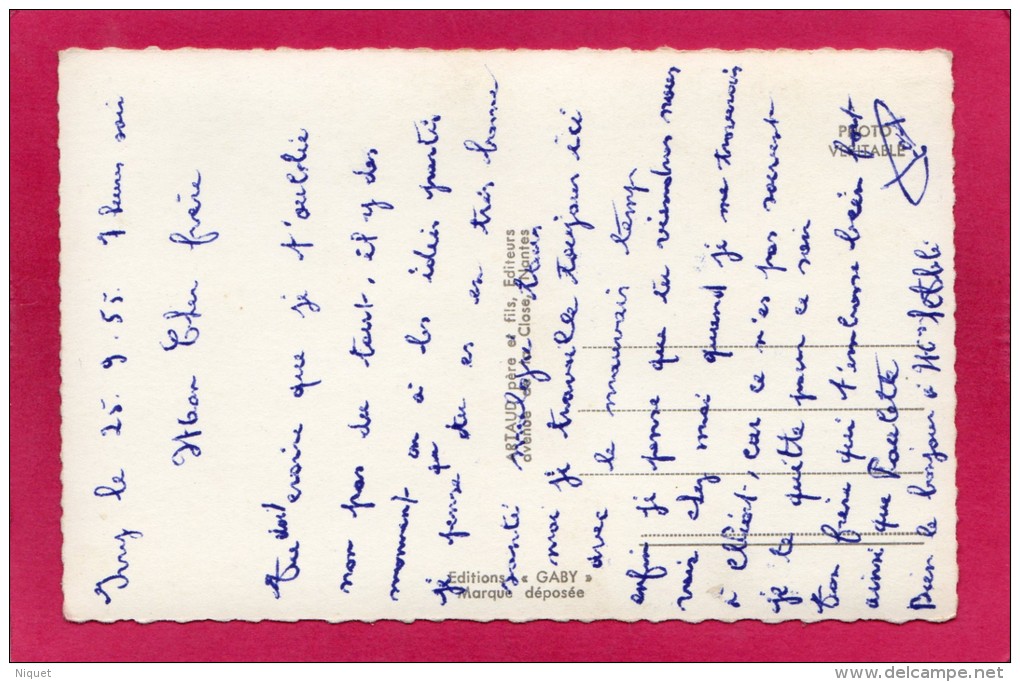 Ivry le 25.9.55. 9 heures soir
Mon Cher frère
Tu doit croire que je t'oublie
non pas du tout, il y des
moment on à les idées partis
je pense que tu es en très bonne
santé
moi je travaille toujours ici
avec le mauvais temp
enfin je pense que tu viendras nous
voir chez moi quand je me trouverais
à, car ce n'es pas souvent
je te quitte pour ce soir
Ton frère qui t'embrasse bien fort
ainsi que Paulette
Bien le bonjour à Mme
ARTAUD père et fils, Editeurs
avenue de la Close, Nantes
Editions « GABY »
Marque déposée
PHOTO
VERITABLE
Niquet
http://www.delcampe.net